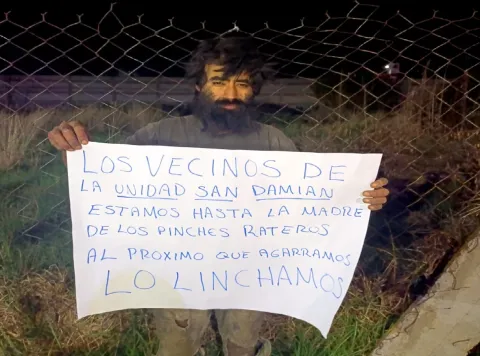 LOS VECINOS DE
LA UNIDAD SAN DAMIAN
ESTAMOS HASTA LA MADRE
DE LOS PINCHES RATEROS
AL PROXIMO QUE AGARRAMOS
LO LINCHAMOS